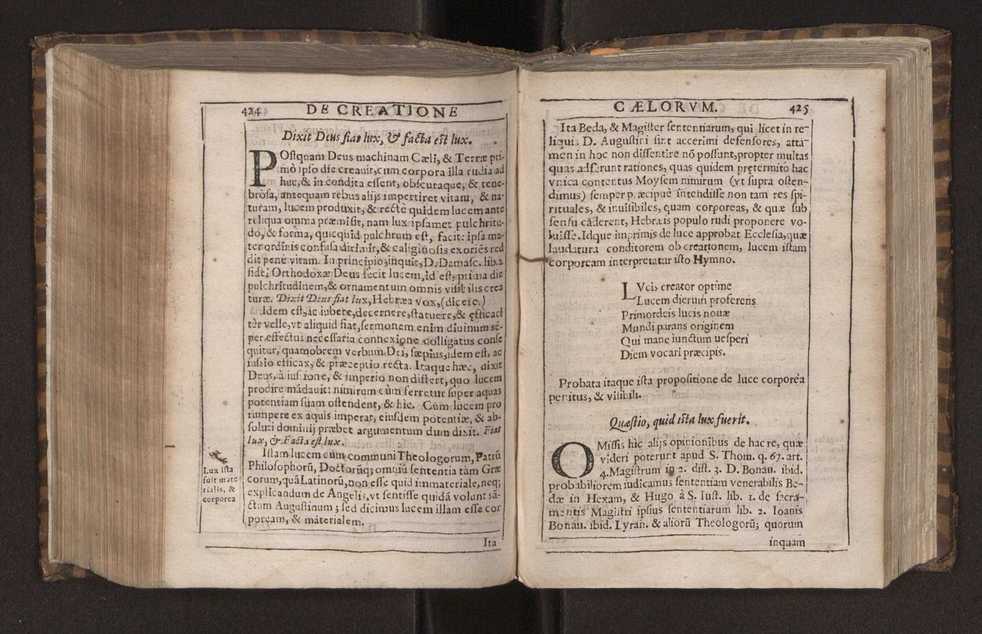 424 DE CREATIONE
Dixit Deus fiat lux, & facta est lux.
POstquam Deus machinam Cæli, & Terræ pri-
mo ipso die creauit, cum corpora illa rudia ad
huc, & in condita essent, obscuraque, & tene-
brosa, antequam rebus alijs impertiret vitam, & na-
turam, lucem produxit, & recte quidem lucem ante
reliqua omnia præmisit, nam lux ipsamet pulchritu-
do, & forma, quicquid pulchrum est, facit: ipsa ma-
ter ordinis confusa distinxit, & caliginosis exoriẽs red
dit penè vitam. In principio, inquit, D. Damasc. lib. 2.
fidei Orthodoxæ Deus fecit lucem, id est, prima die
pulchritudinem, & ornamentum omnis visibilis crea
turæ. Dixit Deus fiat lux, Hebræa vox, (dicere.)
Idem est, ac iubere, decernere, statuere, & efficaci
tèr velle, vt aliquid fiat, sermonem enim diuinum sẽ-
per effectui necessaria connexione colligatus conse
quitur, quamobrem verbum Dei, sæpius, idem est, ac
iussio efficax, & præceptio recta. Itaque hæc, dixit
Deus, à iussione, & imperio non differt, quo lucem
prodire mãdauit: nimirum cùm ferretur super aquas
potentiam suam ostendent, & hic. Cùm lucem pro
rumpere ex aquis imperat, eiusdem potentiæ, & ab-
soluti dominij præbet argumentum dum dixit. Fiat
lux, & Facta est lux.
Istam lucem cùm communi Theologorum, Patrũ
Philosophorũ, Doctorũq; omniũ sententia tàm Græ
corum, quã Latinorũ, non esse quid immateriale, neq;
explicandum de Angelis, vt sentisse quidã volunt sã-
ctum Augustinum; sed dicimus lucem illam esse cor
poream, & materialem.
Lux ista
fuit mate
rialis, &
corporea
Ita
CÆLORVM. 425
Ita Beda, & Magister sententiarum, qui licet in re-
liquis D. Augustini sint accerimi defensores, atta
men in hoc non dissentire nõ possunt, propter multas
quas adferunt rationes, quas quidem pretermito hac
vnica contentus Moysem nimirum (vt supra osten-
dimus) semper præcipuè intendisse non tam res spi-
rituales, & inuisibiles, quam corporeas, & quæ sub
sensu càderent, Hebræis populo rudi proponere vo-
luisse. Idque imprimis de luce approbat Ecclesia, quæ
laudatura conditorem ob creationem, lucem istam
corpoream interpretatur isto Hymno.
LVcis creator optime
Lucem dierum proferens
Primordeis lucis nouæ
Mundi parans originem
Qui mane iunctum uesperi
Diem vocari præcipis.
Probata itaque ista propositione de luce corporéa
penitus, & visibili.
Quæstio, quid ista lux fuerit.
OMissis hìc alijs opinionibus de hac re, quæ
videri poterunt apud S. Thom. q. 67. art.
4. Magistrum in 2. dist. 3. D. Bonau. ibid.
probabiliorem iudicamus sententiam venerabilis Be-
dæ in Hexam, & Hugo à S. Iust. lib. 1. de sacra-
mentis Magistri ipsius sententiarum lib. 2. Ioanis
Bonau. ibid. Lyran. & aliorũ Theologorũ, quorum
inquam